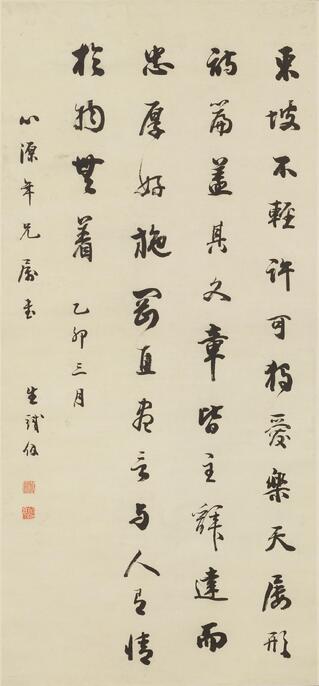 東坡不輕許可獨愛樂天屢形
詩篇蓋其文章皆主辭達而
忠厚好施剛直盡言與人有情
於物無着 乙卯三月
心源年兄屬書